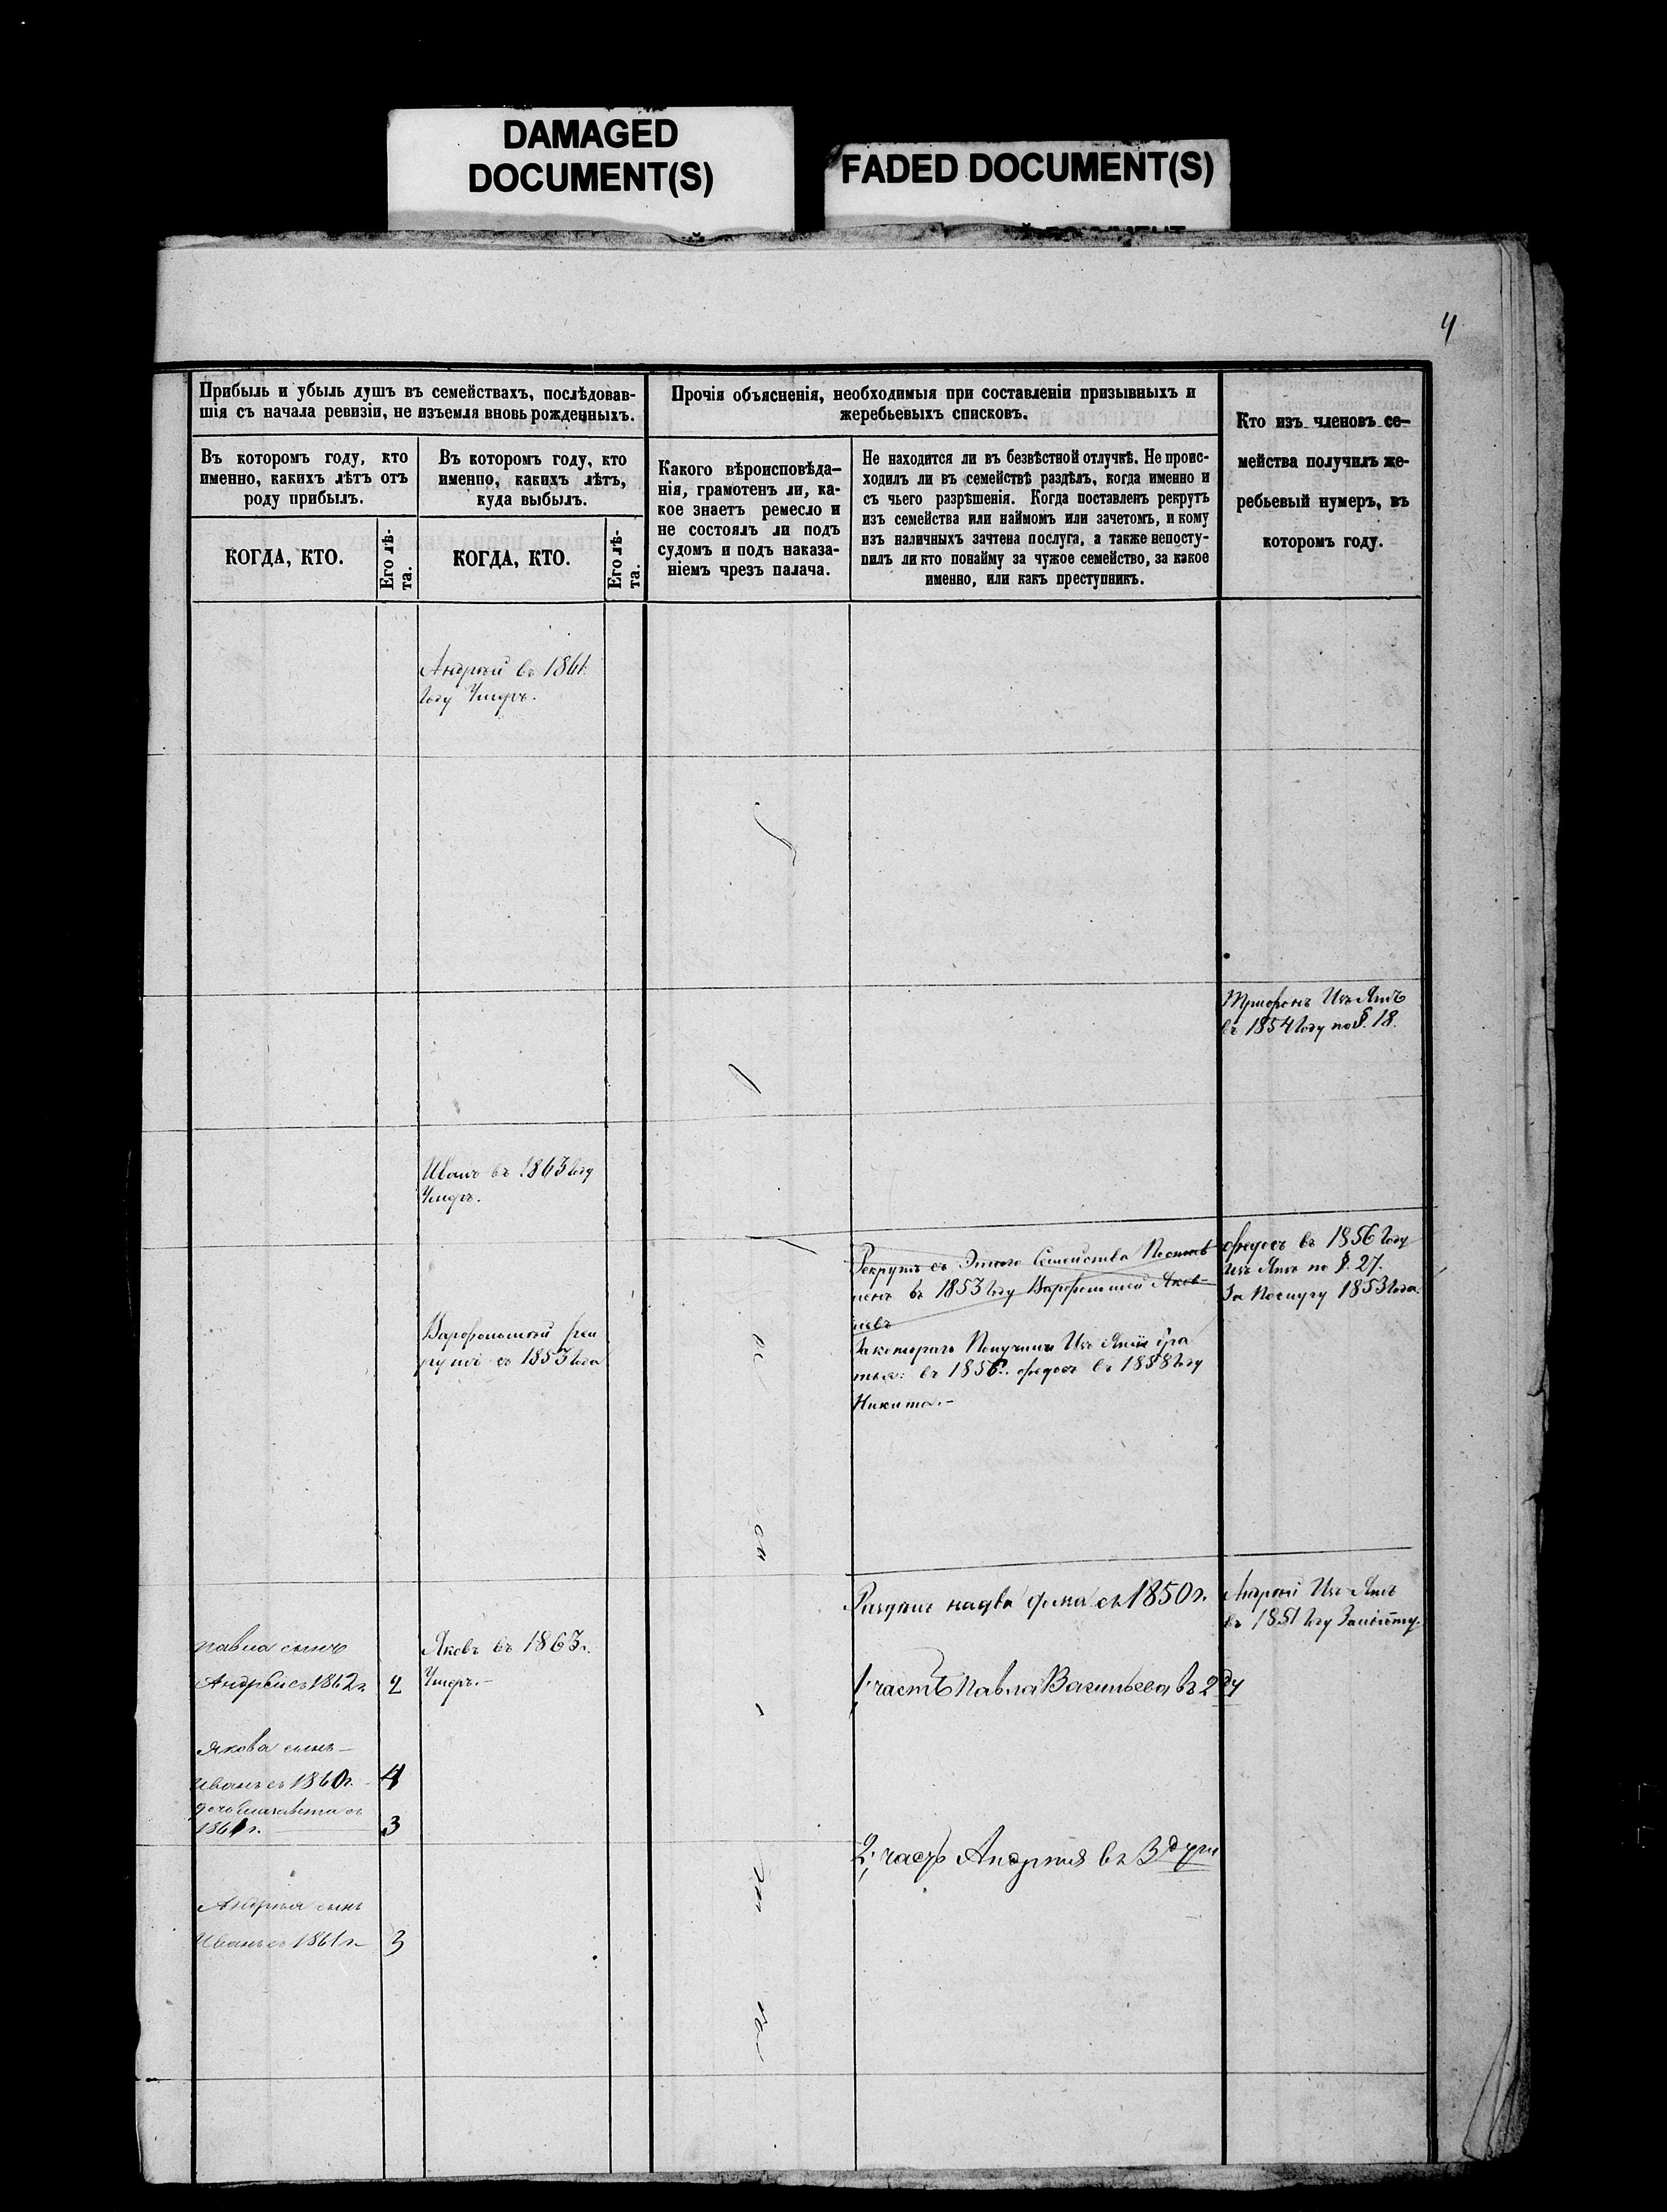 DAMAGED
DOCUMENT(S)
FADED DOCUMENT(S)
4
Прибыль и убыль душъ въ семействахъ, послѣдовав-
шія съ начала ревизіи, не изъемля вновь рожденныхъ.
Прочія объясненія, необходимыя при составленіи призывныхъ и
жеребьевыхъ списковъ.
Кто изъ членовъ се-
мейства получилъ же-
ребьевый нумеръ, въ
которомъ году.
Въ которомъ году, кто
именно, какихъ лѣтъ отъ
роду прибылъ.
Въ которомъ году, кто
именно, какихъ лѣтъ,
куда выбылъ.
Какого вѣроисповѣда-
нія, грамотенъ ли, ка-
кое знаетъ ремесло и
не состоялъ ли подъ
судомъ и подъ наказа-
ніемъ чрезъ палача.
Не находится ли въ безвѣстной отлучкѣ. Не проис-
ходилъ ли въ семействѣ раздѣлъ, когда именно и
съ чьего разрѣшенія. Когда поставленъ рекрутъ
изъ семейства или наймомъ или зачетомъ, и кому
изъ наличныхъ зачтена послуга, а также непосту-
пилъ ли кто понайму за чужое семейство, за какое
именно, или какъ преступникъ.
КОГДА, КТО.
Его лѣ-
та.
КОГДА, КТО.
Его лѣ-
та.
Андрей въ 1861
году Умеръ.
Трифонъ Изъятъ
въ 1854 году по §. 18.
Иванъ въ 1863 году
Умеръ.
Рекрутъ съ Этого Семейства
въ 1853 году Варфоломей Яков-
левъ
За котораго Получили Изъятіе бра
тья: въ 1856. Федосъ въ 1858 году
Никита.-
Федосъ въ 1856 году
Изъятъ по §. 27.
За Послугу 1853 года.
Варфоломей рек
рутъ съ 1853 года
на два съ 1850 г.
Андрей Изъятъ
въ 1851 году
Павла сынъ
Андрей съ 1862 г. 2
Яковъ въ 1863 г.
Умеръ.-
1: часть Павла Васильева въ 2 ду
Якова сынъ-
Иванъ съ 1860 г. - 4
дочь Елизавета съ
1861 г. 3
2; часть Андрея въ 3 души
Андрея сынъ
Иванъ съ 1861 г.- 3